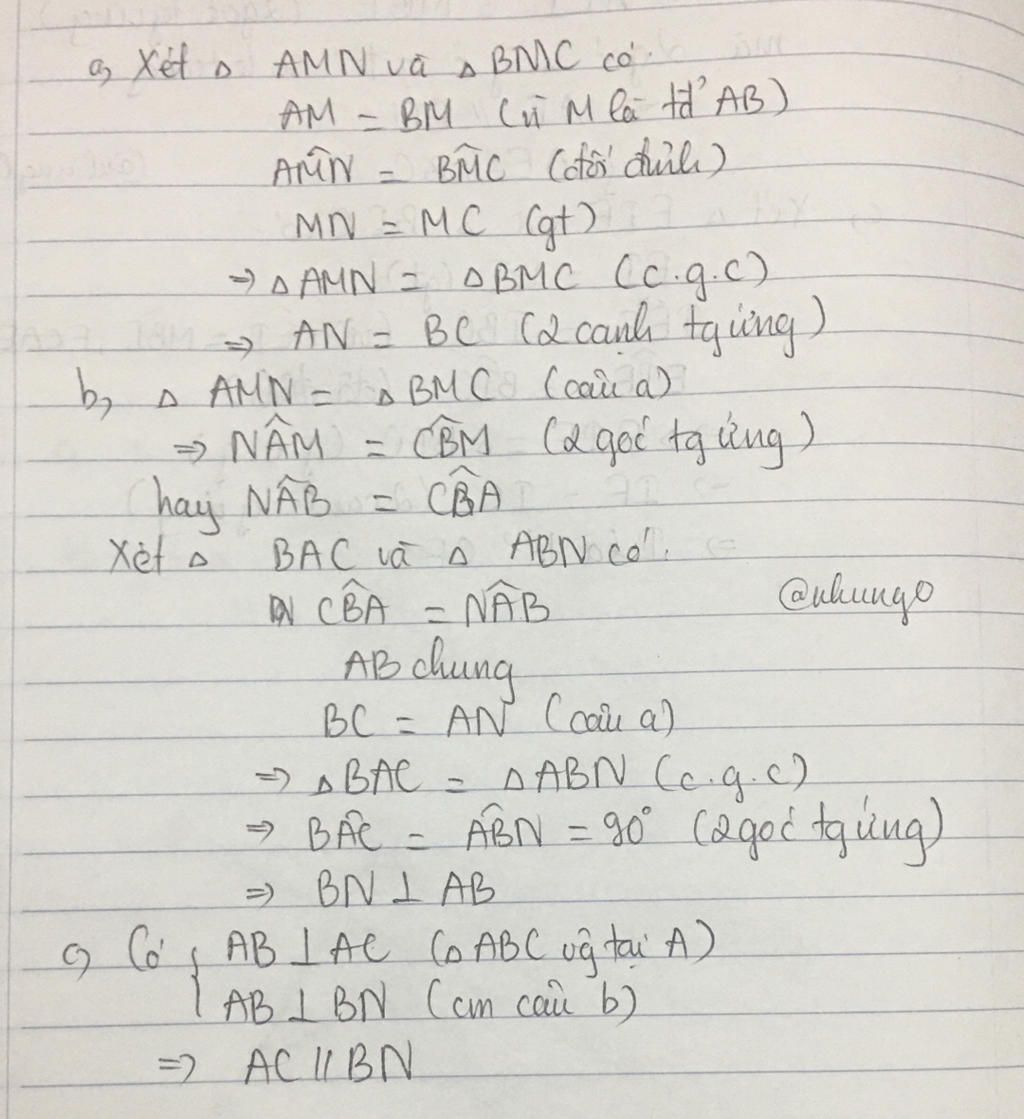 a, Xét Δ AMN và Δ BMC có.
AM = BM (vì M là tđ' AB)
AM̂N = BM̂C (đối đỉnh)
MN = MC (gt)
⇒ Δ AMN = Δ BMC (c.g.c)
⇒ AN = BC (2 cạnh tg ứng)
b, Δ AMN = Δ BMC (câu a)
⇒ NÂM = CB̂M (2 góc tg ứng)
hay NÂB = CB̂A
Xét Δ BAC và Δ ABN có.
CB̂A = NÂB
@nhung0
AB chung
BC = AN (câu a)
⇒ Δ BAC = Δ ABN (c.g.c)
⇒ BÂC = AB̂N = 90° (2 góc tg ứng)
⇒ BN ⊥ AB
c, Có { AB ⊥ AC (Δ ABC vg tại A)
AB ⊥ BN (cm câu b)
⇒ AC // BN